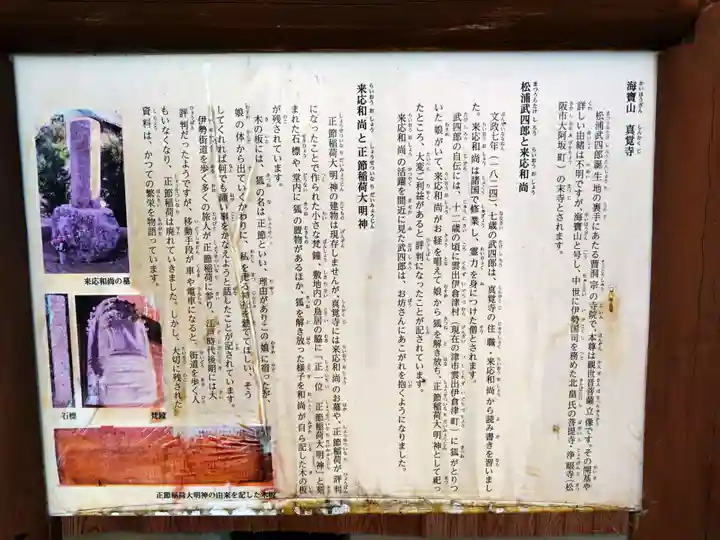 海寶山 真覚寺
松浦武四郎誕生地の裏手にあたる曹洞宗の寺院で、本尊は観世音菩薩立像です。その開基や
詳しい由緒は不明ですが、海寶山と号し、中世に伊勢国司を務めた北畠氏の菩提寺・浄眼寺(松
阪市大阿坂町)の末寺とされます。
松浦武四郎と来応和尚
文政七年(一八二四)、七歳の武四郎は、真覚寺の住職 来応和尚から読み書きを習いまし
た。来応和尚は諸国で修業し、霊力を身につけた僧とされます。
武四郎の自伝には、十二歳の頃に雲出伊倉津村(現在の津市雲出伊倉津町)に狐がとりつ
いた娘がいて、来応和尚がお経を唱えて娘から狐を解き放ち、正節稲荷大明神として祀っ
たところ、大変ご利益があると評判になったことが記されています。
来応和尚の活躍を間近に見た武四郎は、お坊さんにあこがれを抱くようになりました。
来応和尚と正節稲荷大明神
正節稲荷大明神の建物は現存しませんが、真覚寺には来応和尚のお墓や、正節稲荷が評判
になったことで作られた小さな梵鐘、敷地内の鳥居の脇に「正一位 正節稲荷大明神」と刻
まれた石標や、堂内に狐の置物があるほか、狐を解き放った様子を和尚が自ら記した木の板
が残されています。
木の板には、狐の名は正節といい、理由がありこの娘に宿ったが、
娘の体から出ていくかわりに、私を走る神法を建ててほしい、そう
してくれれば何でも願い事をかなえようと話したことが記されています。
伊勢街道を歩く多くの旅人が正節稲荷に参り、江戸時代後期には大
評判だったようですが、移動手段が車や電車になると、街道を歩く人
もいなくなり、正節稲荷は廃れていきました。しかし、大切に残された
資料は、かつての繁栄を物語っています。
来応和尚の墓
石標
梵鐘
正節稲荷大明神の由来を記した木板